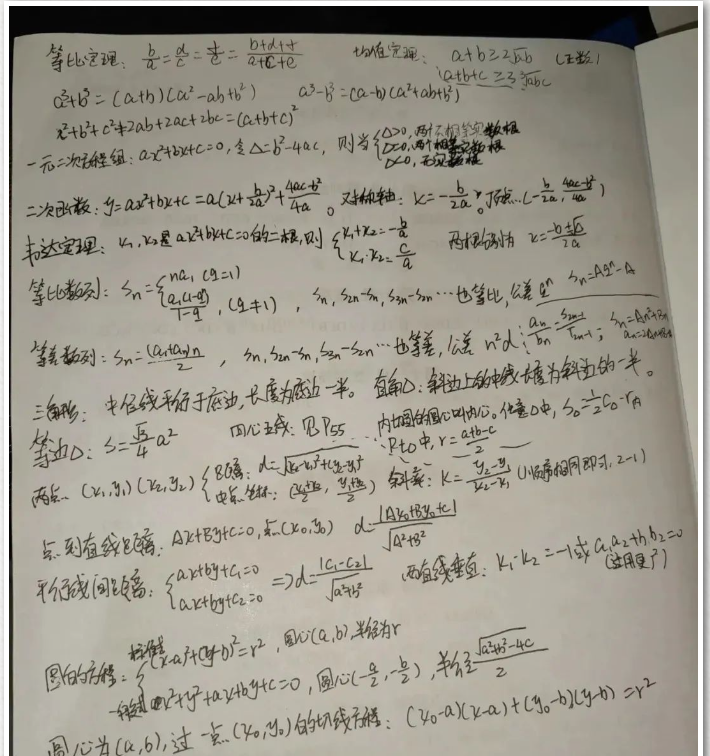 等比定理: b/a = d/c = f/e = (b+d+f)/(a+c+e) 均值定理: a+b≥2√ab (正数)
a+b+c≥3∛abc
a³+b³=(a+b)(a²-ab+b²) a³-b³=(a-b)(a²+ab+b²)
a²+b²+c²+2ab+2ac+2bc=(a+b+c)²
一元二次方程组: ax²+bx+c=0, 令Δ=b²-4ac, 则当{Δ>0, 两个不相等实数根
Δ=0, 两个相等实数根
Δ<0, 无实数根
二次函数: y=ax²+bx+c=a(x+b/2a)²+(4ac-b²)/4a。对称轴: x=-b/2a。顶点(-b/2a, (4ac-b²)/4a)
韦达定理: x₁,x₂是ax²+bx+c=0的二根,则{x₁+x₂=-b/a
x₁·x₂=c/a
两根分别为 x=(-b±√Δ)/2a
等比数列: Sn={na₁ (q=1)
a₁(1-qⁿ)/(1-q), (q≠1), Sn, S2n-Sn, S3n-S2n…也等比, 公差qⁿ Sn=Aqⁿ-A
等差数列: Sn=(a₁+an)n/2, Sn, S2n-Sn, S3n-S2n…也等差, 公差 n²d; an/bn=S2n-1/T2n-1; Sn=An²+Bn
三角形: 中位线平行于底边,长度为底边一半。直角△:斜边上的中线长度为斜边的一半。
等边△: S=√3/4 a² 四心五线: 见P55 内切圆的圆心叫内心。任意△中, S△=1/2C△·r
Rt△中, r=(a+b-c)/2
两点 (x₁,y₁)(x₂,y₂){距离: d=√(x₁-x₂)²+(y₁-y₂)²
中点坐标: ((x₁+x₂)/2, (y₁+y₂)/2) 斜率: K=(y₂-y₁)/(x₂-x₁) (顺序相同即可, 2-1)
点到直线距离: Ax+By+c=0, 点(x₀,y₀) d=|Ax₀+By₀+c|/√A²+B²
平行线间距离: {ax+by+c₁=0
ax+by+c₂=0 => d=|c₁-c₂|/√a²+b² 两直线垂直: k₁·k₂=-1或a₁a₂+b₁b₂=0
(适用更广)
圆的方程: {标准型 (x-a)²+(y-b)²=r², 圆心(a,b), 半径为r
一般型 x²+y²+ax+by+c=0, 圆心(-a/2, -b/2), 半径√a²+b²-4c/2
圆心为(a,b), 过一点(x₀,y₀)的切线方程: (x₀-a)(x-a)+(y₀-b)(y-b)=r²